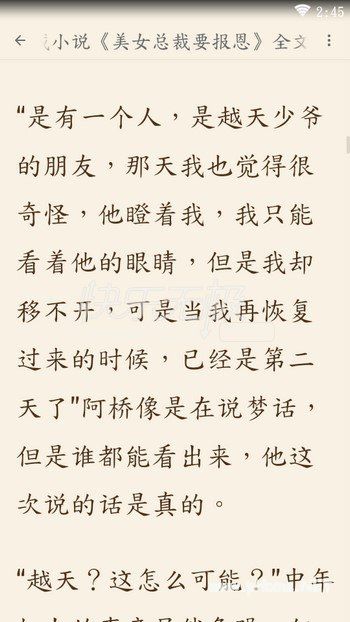 2:45
小说《美女总裁要报恩》全文
“是有一个人，是越天少爷
的朋友，那天我也觉得很
奇怪，他瞪着我，我只能
看着他的眼睛，但是我却
移不开，可是当我再恢复
过来的时候，已经是第二
天了”阿桥像是在说梦话，
但是谁都能看出来，他这
次说的话是真的。
“越天？这怎么可能？”中年